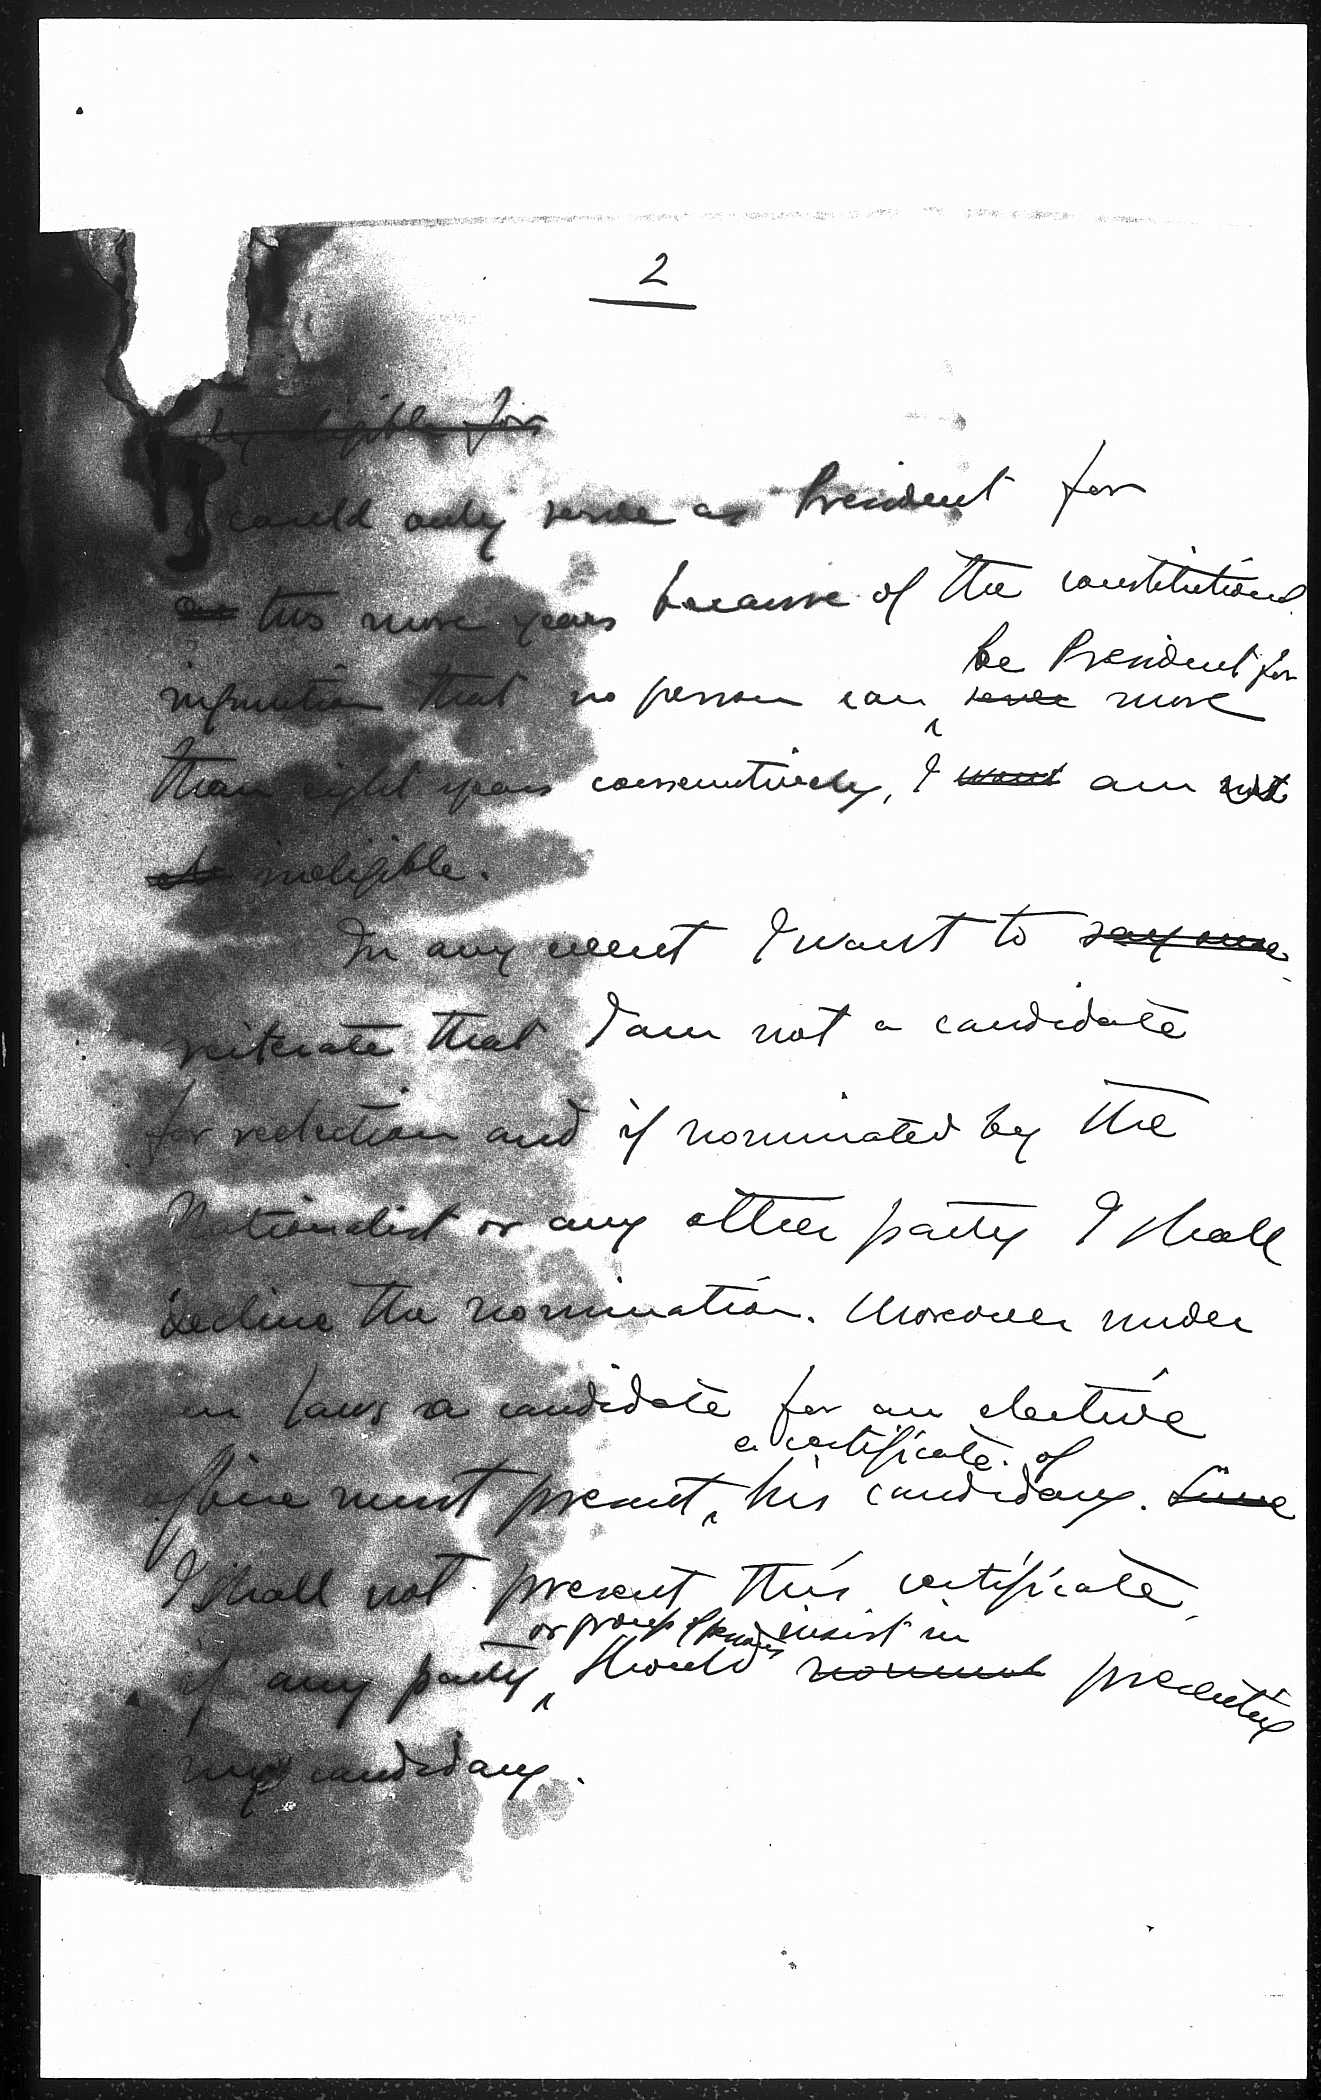 2
eligible for
I could only serve as President for
two more years because of the constitutional
injunction that no person can serve more
be President for
than eight years consecutively, I want am not
ineligible.
In any event I want to say one
reiterate that I am not a candidate
for reelection and if nominated by the
Nationalist or any other party I shall
decline the nomination. Moreover under
our laws a candidate for an elective
a certificate of
office must present his candidacy. Since
I shall not present this certificate
or group of persons insist in
if any party should nominat presenting
my candidacy.